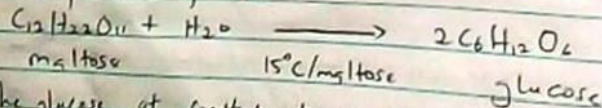 C₁₂H₂₂O₁₁ + H₂O ⟶ 2C₆H₁₂O₆
maltose 15°C/maltose glucose
glucose at